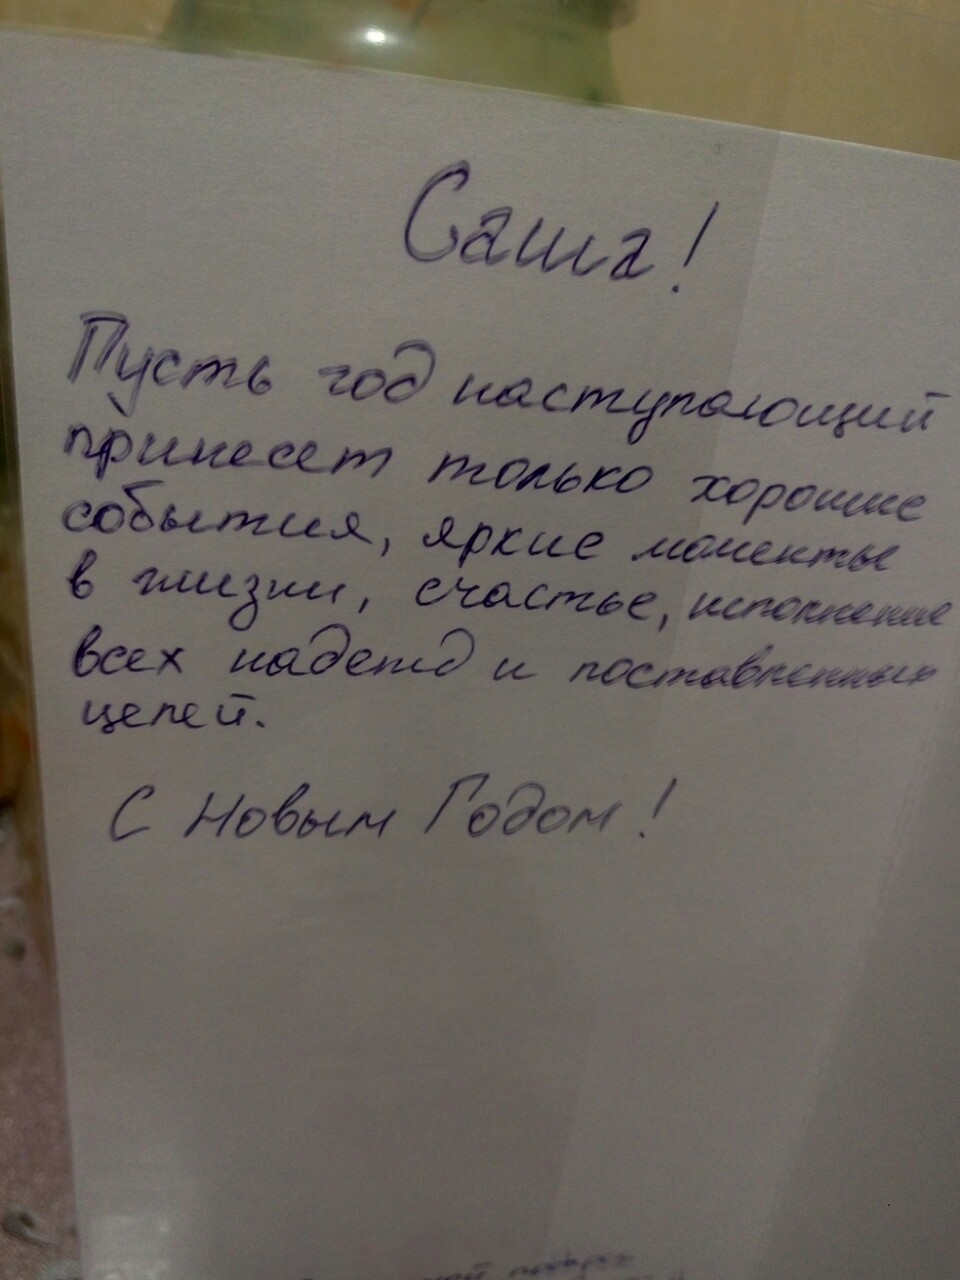 Саша!
Пусть год наступающий
принесет только хорошие
события, яркие моменты
в жизни, счастье, исполнение
всех надежд и поставленных
целей.
С Новым Годом!
подарок